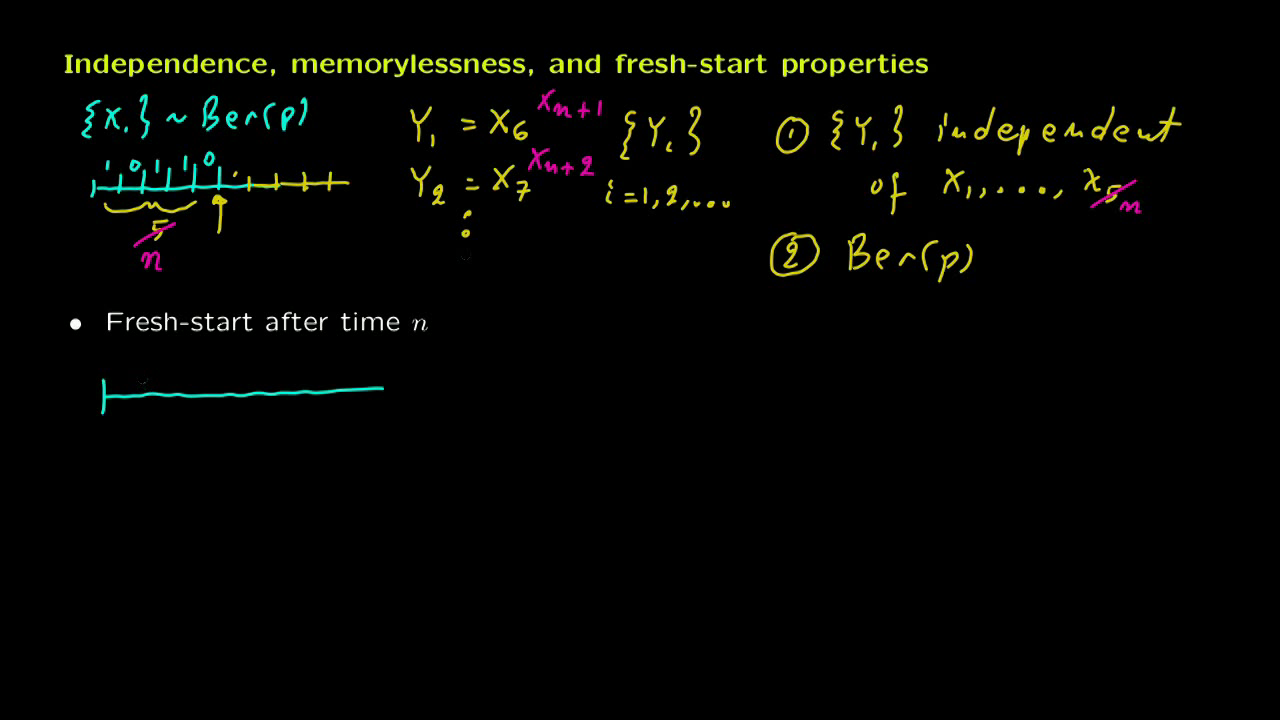 Independence, memorylessness, and fresh-start properties
{Xi} ~ Ber(p)
1 0 1 1 0
5 n
Y1 = X6 Xn+1
Y2 = X7 Xn+2
⋮
{Yi}
i = 1, 2, ...
① {Yi} independent
of X1, ..., X5 n
② Ber(p)
• Fresh-start after time n